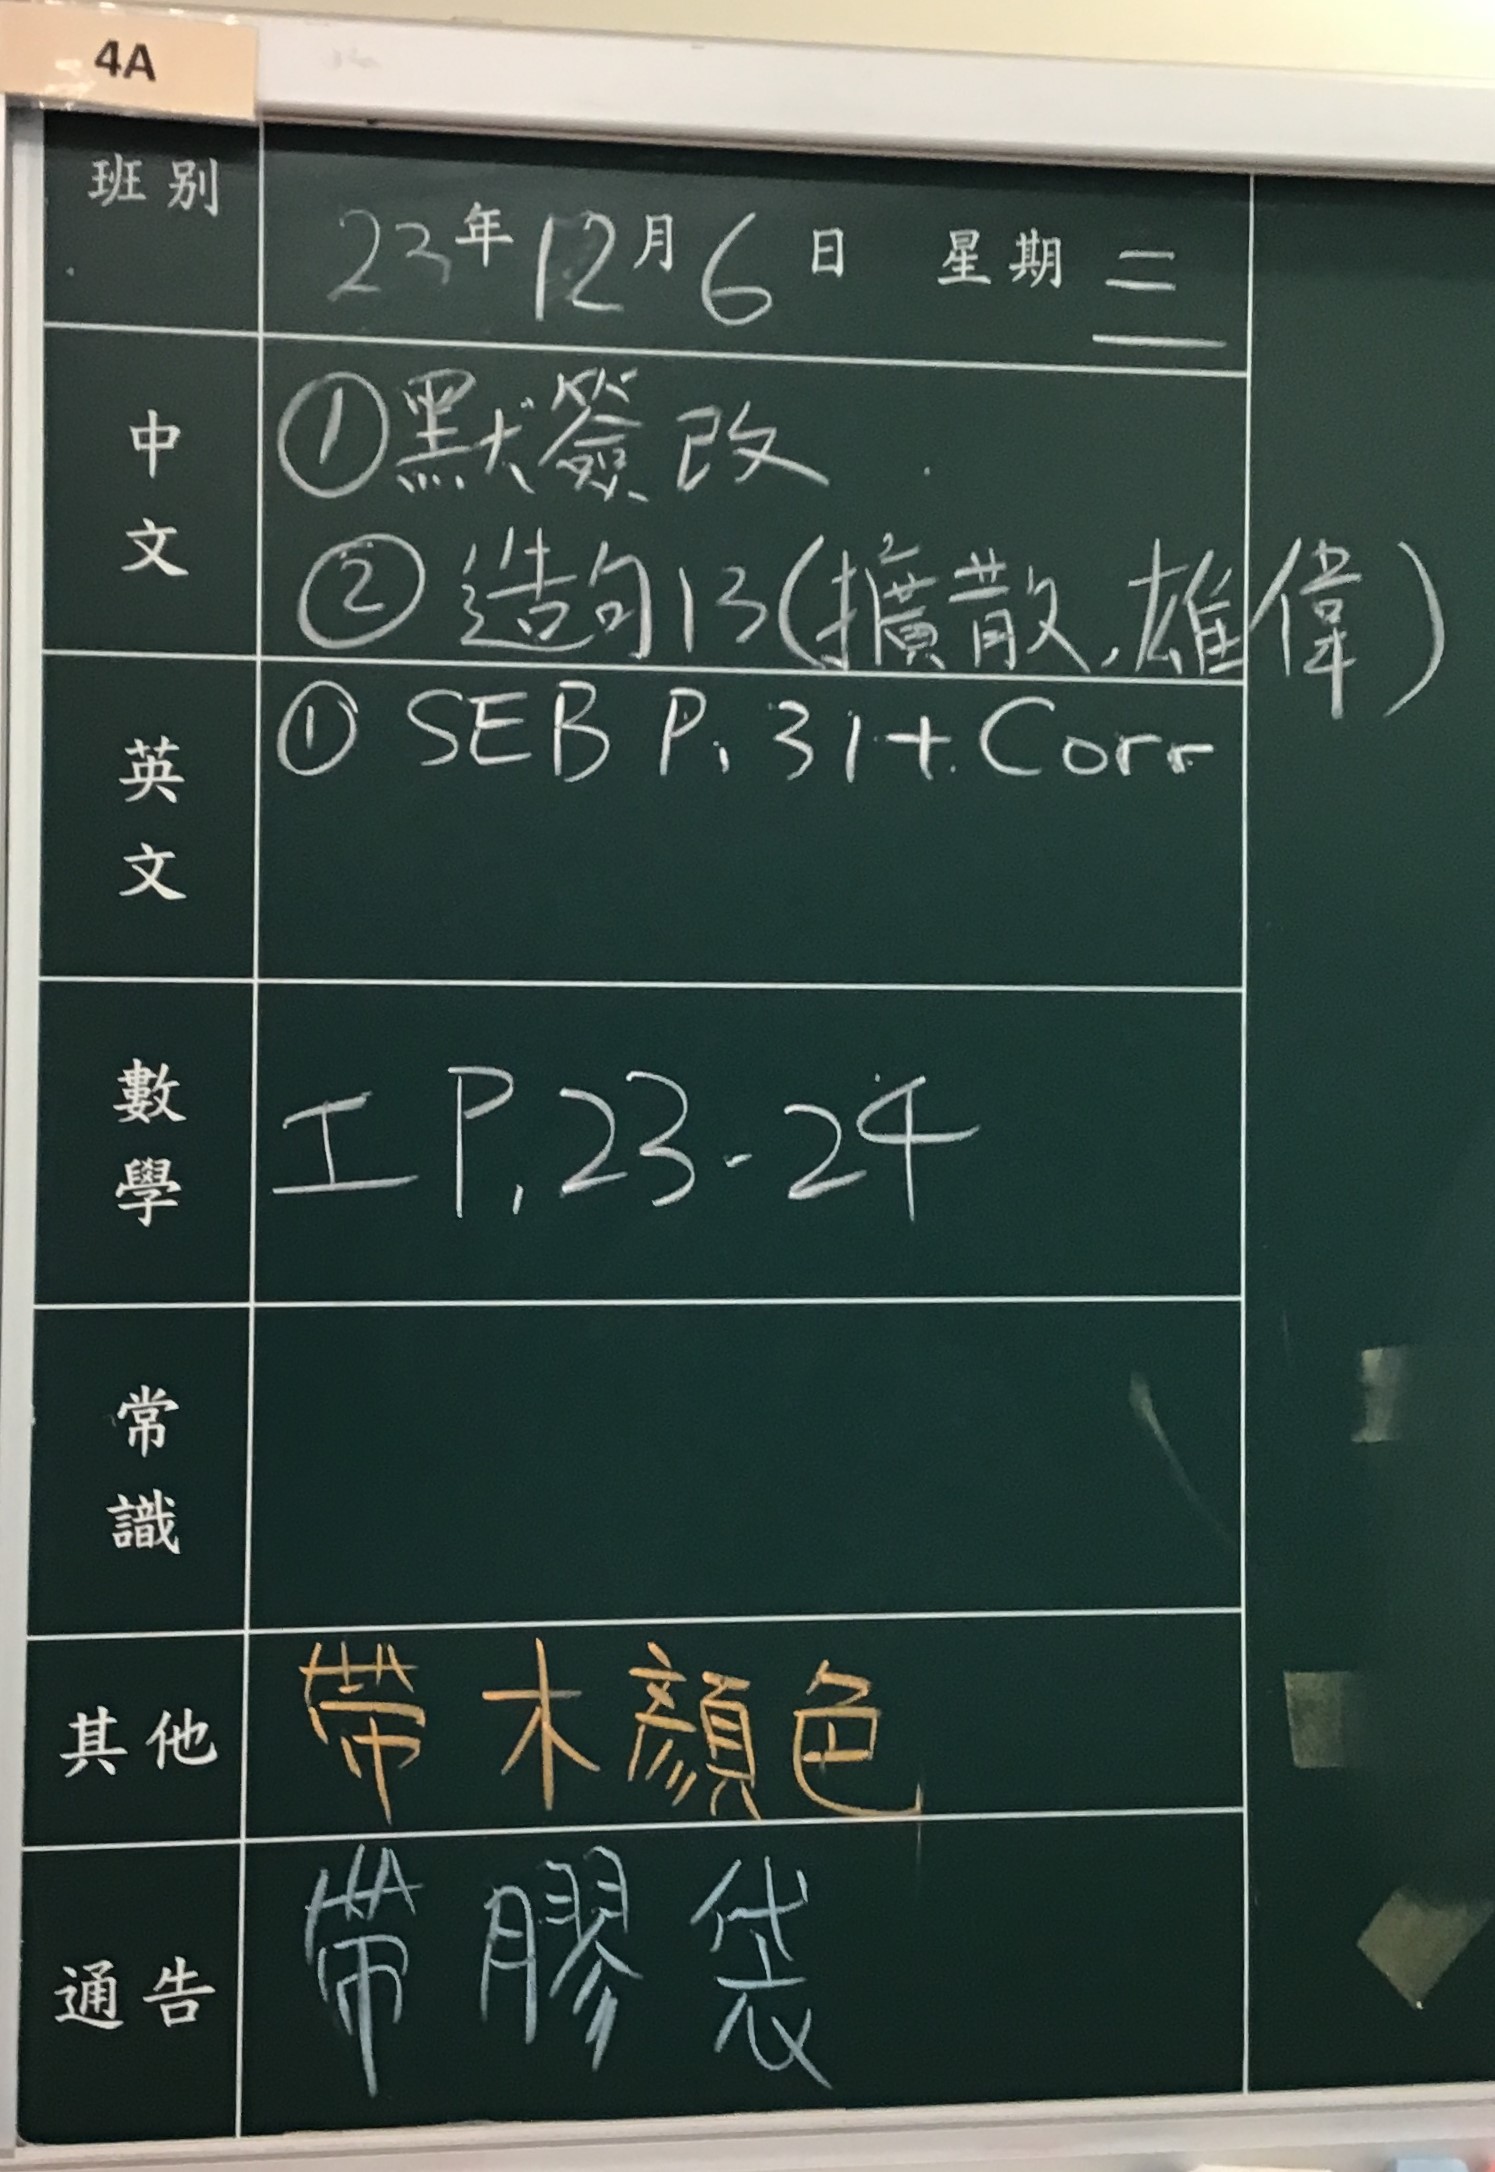 4A
班別
23年12月6日 星期三
中文
①默簽改
②造句13(擴散,雄偉)
英文
① SEB P.31+Corr
數學
工 P.23-24
常識
其他
帶木顏色
通告
帶膠袋